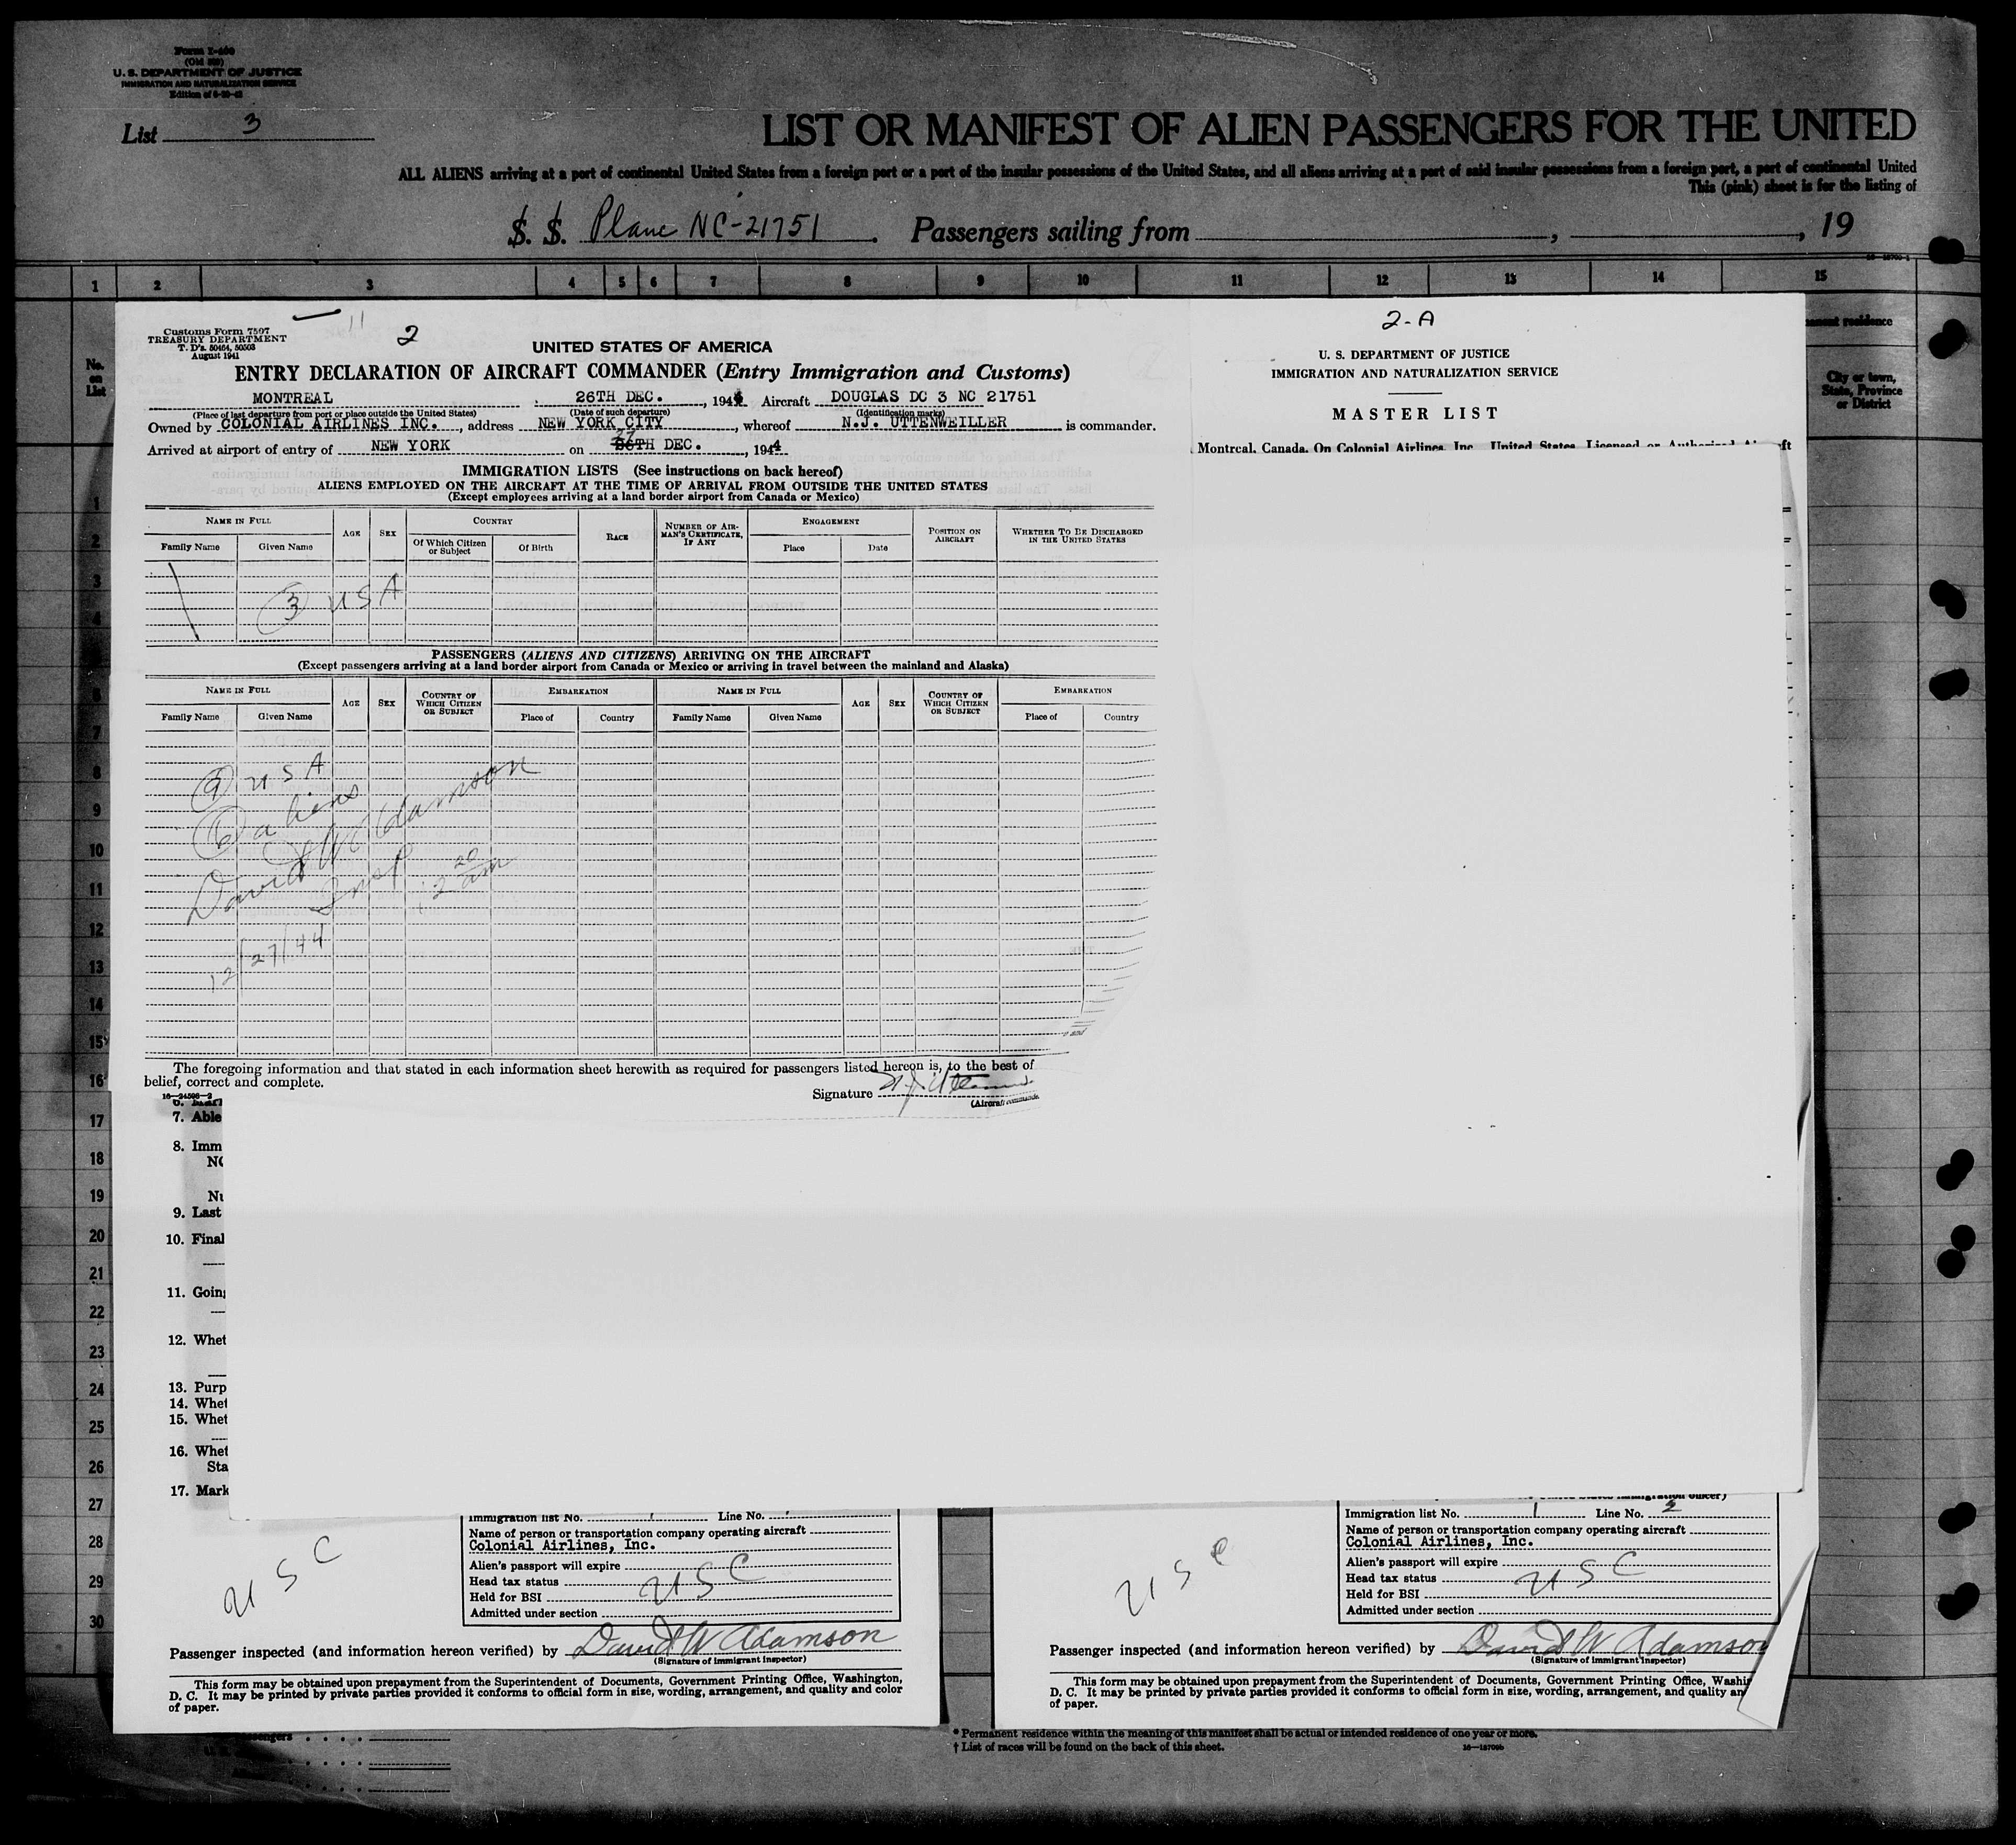 Form I-466
(Old 500)
U. S. DEPARTMENT OF JUSTICE
IMMIGRATION AND NATURALIZATION SERVICE
List 3
LIST OR MANIFEST OF ALIEN PASSENGERS FOR THE UNITED
ALL ALIENS arriving at a port of continental United States from a foreign port or a port of the insular possessions of the United States, and all aliens arriving at a port of said insular possessions from a foreign port, a port of continental United
This (pink) sheet is for the listing of
S. S. Plane NC-21751. Passengers sailing from , , 19
1 2 3 4 5 6 7 8 9 10 11 12 13 14 15
No. on List
City or town, State, Province or District
Customs Form 7507
TREASURY DEPARTMENT
T. D's. 50464, 50503
August 1941
11
2
UNITED STATES OF AMERICA
ENTRY DECLARATION OF AIRCRAFT COMMANDER (Entry Immigration and Customs)
MONTREAL 26TH DEC. , 1944 Aircraft DOUGLAS DC 3 NC 21751
(Place of last departure from port or place outside the United States) (Date of such departure) (Identification marks)
Owned by COLONIAL AIRLINES INC. , address NEW YORK CITY , whereof N.J. UTTENWEILLER is commander.
Arrived at airport of entry of NEW YORK on 27TH DEC. , 1944
IMMIGRATION LISTS (See instructions on back hereof)
ALIENS EMPLOYED ON THE AIRCRAFT AT THE TIME OF ARRIVAL FROM OUTSIDE THE UNITED STATES
(Except employees arriving at a land border airport from Canada or Mexico)
NAME IN FULL AGE SEX COUNTRY RACE NUMBER OF AIRMAN'S CERTIFICATE, IF ANY ENGAGEMENT POSITION ON AIRCRAFT WHETHER TO BE DISCHARGED IN THE UNITED STATES
Family Name Given Name Of Which Citizen or Subject Of Birth Place Date
3 USA
PASSENGERS (ALIENS AND CITIZENS) ARRIVING ON THE AIRCRAFT
(Except passengers arriving at a land border airport from Canada or Mexico or arriving in travel between the mainland and Alaska)
NAME IN FULL AGE SEX COUNTRY OF WHICH CITIZEN OR SUBJECT EMBARKATION NAME IN FULL AGE SEX COUNTRY OF WHICH CITIZEN OR SUBJECT EMBARKATION
Family Name Given Name Place of Country Family Name Given Name Place of Country
9 USA
6 aliens
David W Adamson
Insp 12 20 am
12/27/44
The foregoing information and that stated in each information sheet herewith as required for passengers listed hereon is, to the best of
belief, correct and complete.
Signature
(Aircraft commande
16-24598-2
2-A
U. S. DEPARTMENT OF JUSTICE
IMMIGRATION AND NATURALIZATION SERVICE
MASTER LIST
Montreal, Canada, On Colonial Airlines, Inc., United States, Licensed or Authorized Aircraft
7. Able
8. Imm
NO
Nu
9. Last
10. Final
11. Going
12. Whet
13. Purp
14. Whet
15. Whet
16. Whet
Sta
17. Mark
1
2
3
4
6
7
8
9
10
11
12
13
14
15
16
17
18
19
20
21
22
23
24
25
26
27
28
29
30
USC
Immigration list No. Line No.
Name of person or transportation company operating aircraft
Colonial Airlines, Inc.
Alien's passport will expire
Head tax status USC
Held for BSI
Admitted under section
Passenger inspected (and information hereon verified) by David W Adamson
(Signature of immigrant inspector)
This form may be obtained upon prepayment from the Superintendent of Documents, Government Printing Office, Washington,
D. C. It may be printed by private parties provided it conforms to official form in size, wording, arrangement, and quality and color
of paper.
USC
Immigration list No. 1 Line No. 2
Name of person or transportation company operating aircraft
Colonial Airlines, Inc.
Alien's passport will expire
Head tax status USC
Held for BSI
Admitted under section
Passenger inspected (and information hereon verified) by David W Adamson
(Signature of immigrant inspector)
This form may be obtained upon prepayment from the Superintendent of Documents, Government Printing Office, Washin
D. C. It may be printed by private parties provided it conforms to official form in size, wording, arrangement, and quality an
of paper.
* Permanent residence within the meaning of this manifest shall be actual or intended residence of one year or more.
† List of races will be found on the back of this sheet.